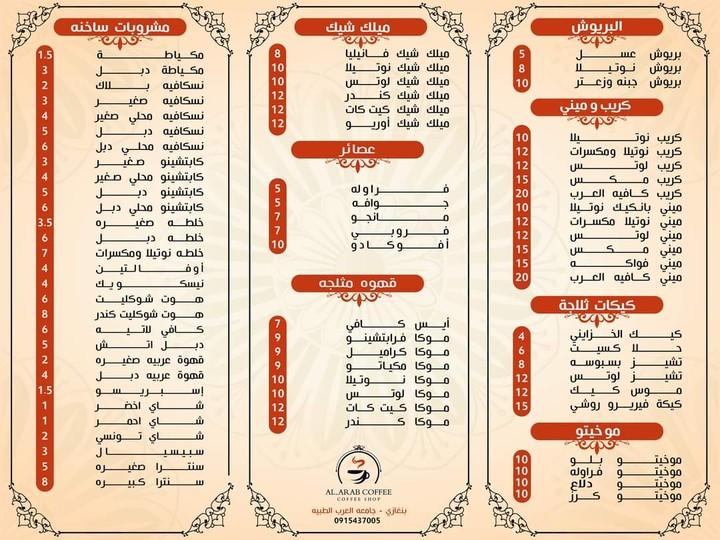 البريوش
بريوش عسل 5
بريوش نوتيلا 8
بريوش جبنه وزعتر 10
كريب و ميني
كريب نوتيلا 10
كريب نوتيلا ومكسرات 12
كريب لوتس 12
كريب مكس 15
كريب كافيه العرب 20
ميني بانكيك نوتيلا 10
ميني نوتيلا مكسرات 12
ميني لوتس 12
ميني مكس 15
ميني فواكه 15
ميني كافيه العرب 20
كيكات ثلاجة
كيك الخزايني 4
حلا كسيت 6
تشيز بسبوسه 8
تشيز لوتس 12
موس كيك 12
كيكة فيريرو روشي 15
موخيتو
موخيتو بلو 10
موخيتو فراوله 10
موخيتو دلاع 10
موخيتو كرز 10
ميلك شيك
ميلك شيك فانيليا 8
ميلك شيك نوتيلا 10
ميلك شيك لوتس 10
ميلك شيك كندر 12
ميلك شيك كيت كات 12
ميلك شيك أوريو 12
عصائر
فراوله 5
جوافه 5
مانجو 7
فروبي 7
أفوكادو 10
قهوه مثلجه
أيس كافي 7
موكا فرابتشينو 9
موكا كراميل 9
موكا مكياتو 9
موكا نوتيلا 10
موكا لوتس 10
موكا كيت كات 12
موكا كندر 12
AL.ARAB COFFEE
COFFEE SHOP
بنغازي - جامعه العرب الطبيه
0915437005
مشروبات ساخنه
مكياطة 1.5
مكياطة دبل 3
نسكافيه بلاك 2
نسكافيه صغير 3
نسكافيه محلي صغير 4
نسكافيه دبل 5
نسكافيه محلي دبل 6
كابتشينو صغير 3
كابتشينو محلي صغير 4
كابتشينو دبل 5
كابتشينو محلي دبل 6
خلطه صغيره 3.5
خلطه دبل 6
خلطه نوتيلا ومكسرات 7
أوفالتين 4
نيسكويك 4
هوت شوكليت 6
هوت شوكليت كندر 8
كافي لاتيه 6
دبل اتش 5
قهوة عربيه صغيره 2
قهوة عربيه دبل 4
إسبريسو 1.5
شاي اخضر 1
شاي احمر 1
شاي تونسي 2
سبيسيال 3
سنترا صغيره 5
سنترا كبيره 8